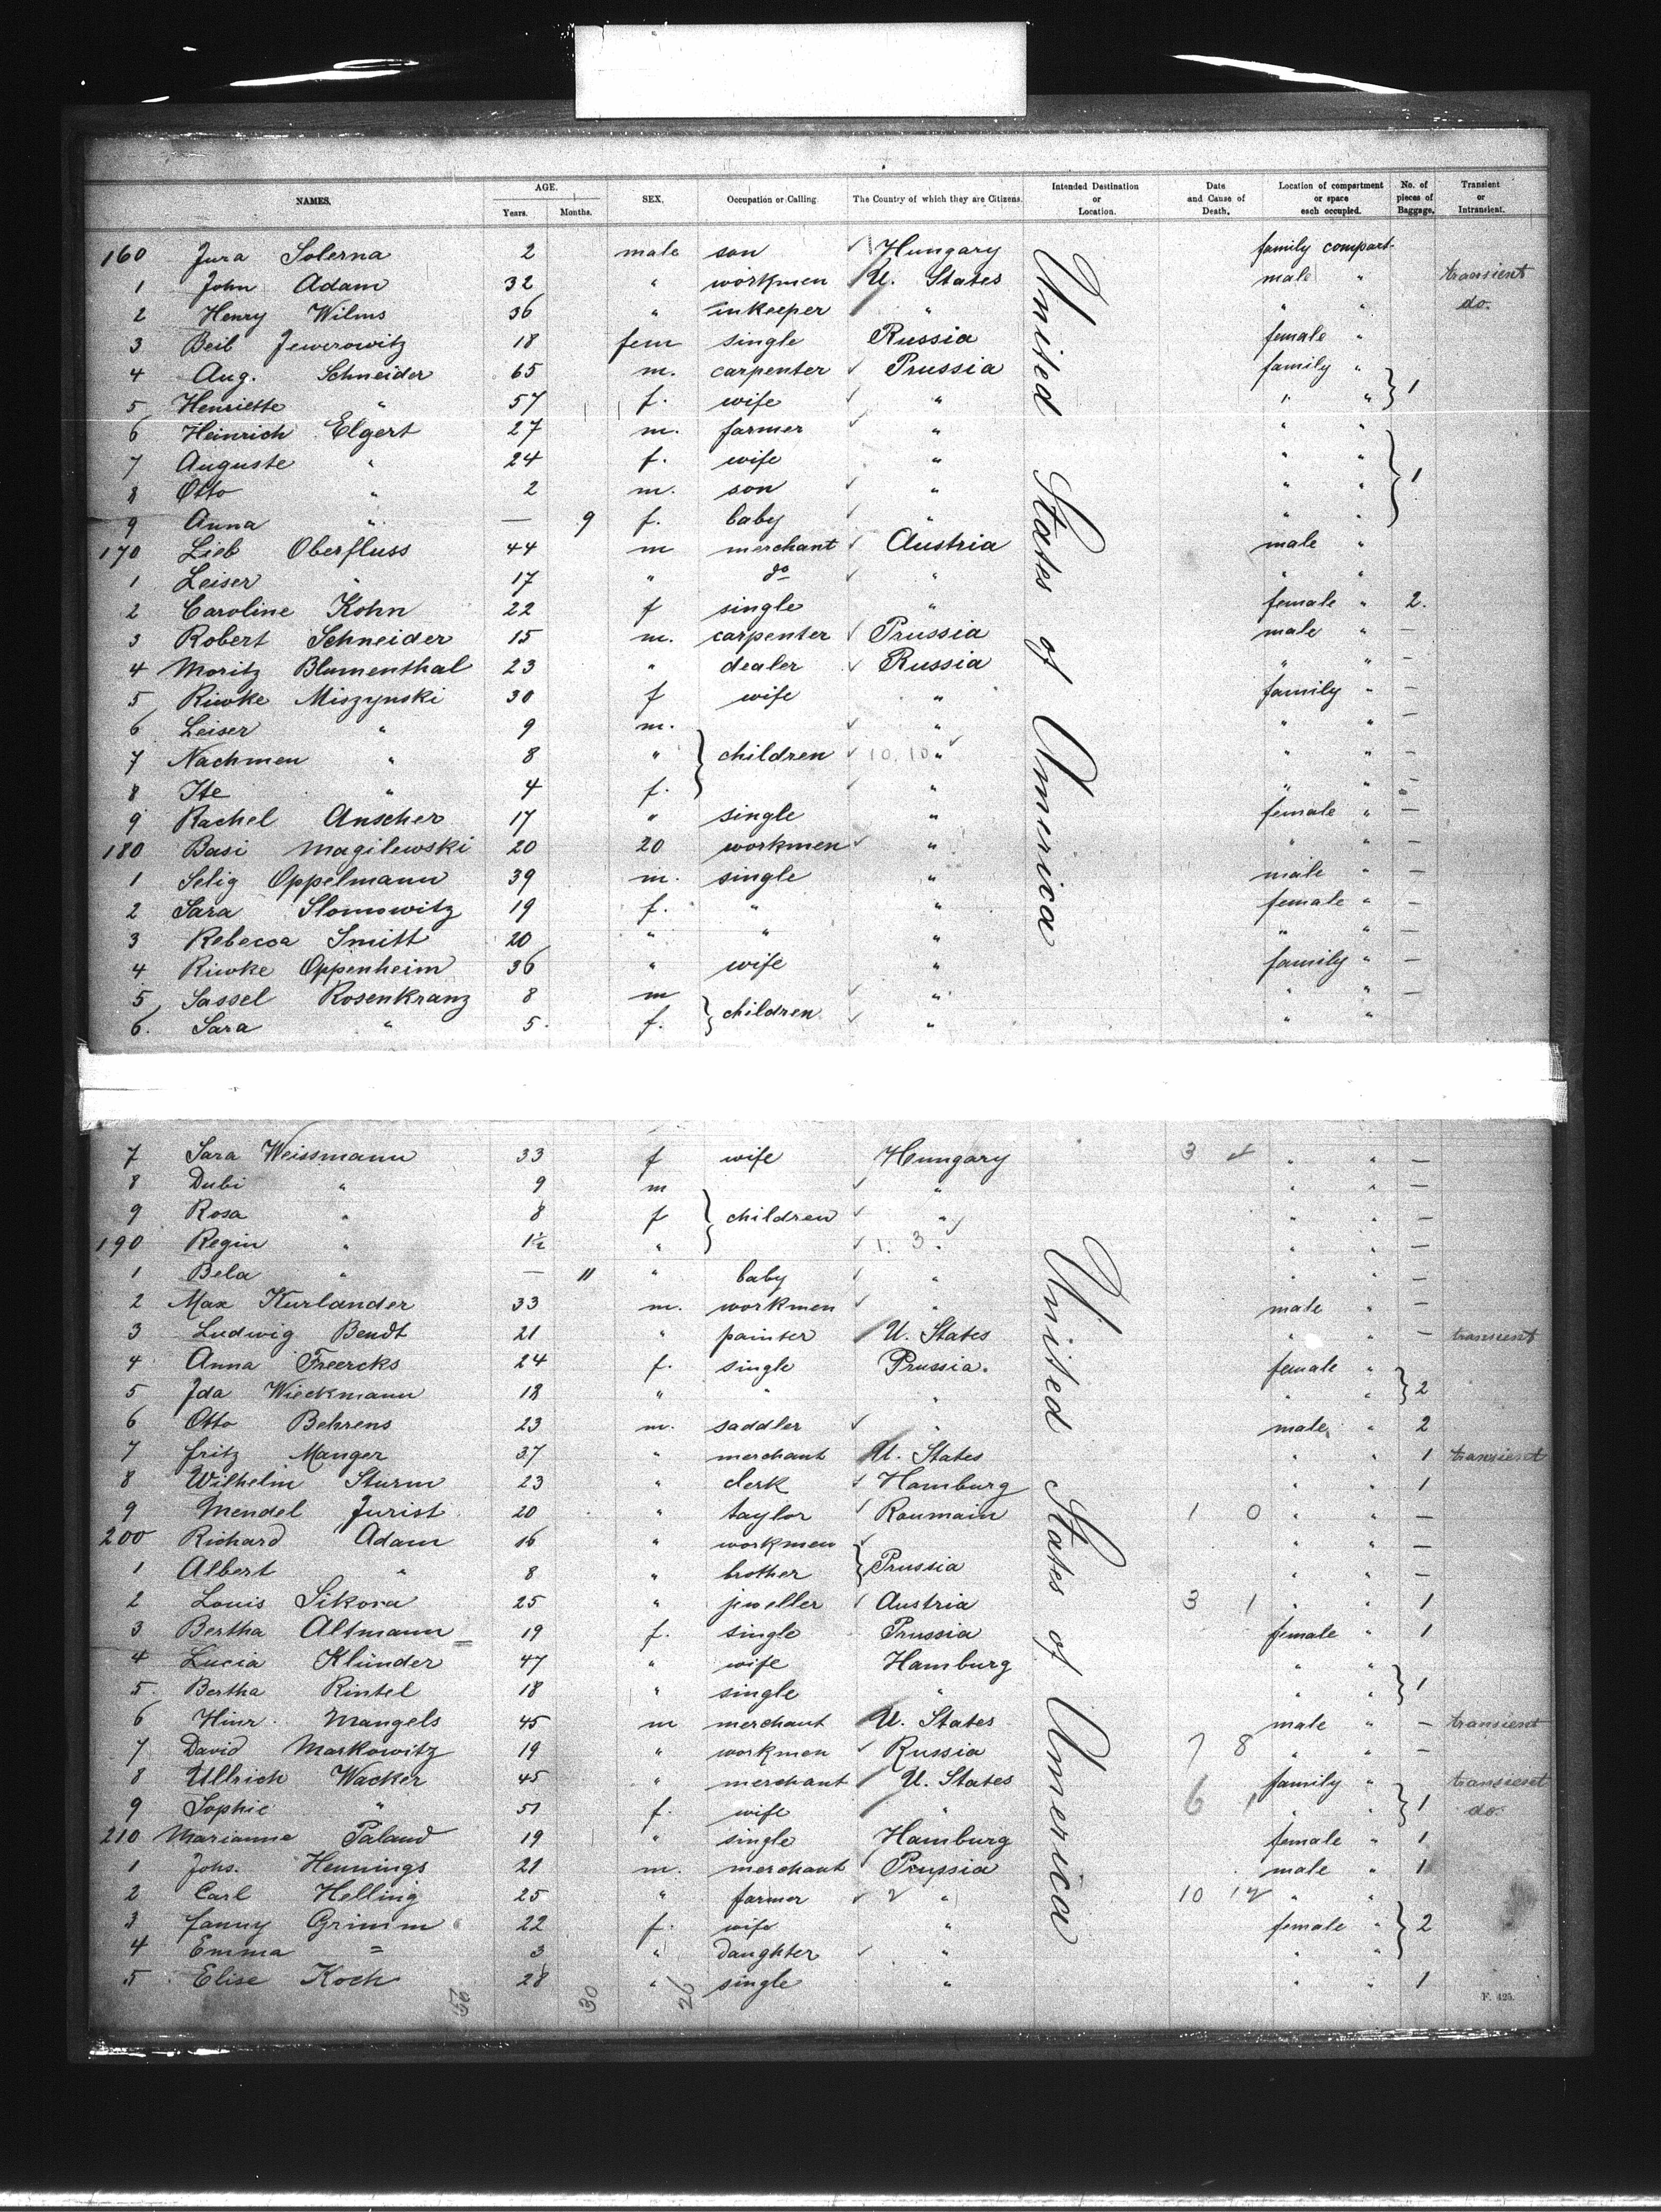 NAMES. AGE. Years. Months. SEX. Occupation or Calling The Country of which they are Citizens. Intended Destination or Location. Date and Cause of Death. Location of compartment or space each occupied. No. of pieces of Baggage. Transient or Intransient.
160 Jura Solerna 2 male son Hungary family compart.
1 John Adam 32 " workmen U. States male " transient
2 Henry Wilms 36 " inkeeper " " " do.
3 Beil Jewerowitz 18 fem single Russia female "
4 Aug. Schneider 65 m. carpenter Prussia family "
5 Henriette " 57 f. wife " " " } 1
6 Heinrich Elgert 27 m. farmer " " "
7 Auguste " 24 f. wife " " "
8 Otto " 2 m. son " " " } 1
9 Anna " — 9 f. baby " " "
170 Lieb Oberfluss 44 m merchant Austria male "
1 Leiser " 17 " do " " "
2 Caroline Kohn 22 f single " female " 2.
3 Robert Schneider 15 m. carpenter Prussia male " —
4 Moritz Blumenthal 23 " dealer Russia " " —
5 Riwke Miszynski 30 f wife " family " —
6 Leiser " 9 m. " " " —
7 Nachmen " 8 " } children 10 10 " " " —
8 Ite " 4 f. " " " —
9 Rachel Anscher 17 " single " female " —
180 Basi Magilewski 20 20 workmen " " " —
1 Selig Oppelmann 39 m. single " male " —
2 Sara Slomowitz 19 f. " " female " —
3 Rebecca Smitt 20 " " " " " —
4 Riwke Oppenheim 36 " wife " family " —
5 Sassel Rosenkranz 8 m " " " —
6. Sara " 5. f. } children " " "
United States of America
7 Sara Weissmann 33 f wife Hungary 3 " " —
8 Dubi " 9 m " " " —
9 Rosa " 8 f } children " " " —
190 Regin " 1½ " 1. 3. " " —
1 Bela " — 11 " baby " " " —
2 Max Kurlander 33 m. workmen " male " —
3 Ludwig Bendt 21 " painter U. States " " — transient
4 Anna Freercks 24 f. single Prussia. female "
5 Ida Wieckmann 18 " " " " " } 2
6 Otto Behrens 23 m. saddler " male " 2
7 Fritz Manger 37 " merchant U. States " " 1 transient
8 Wilhelm Sturm 23 " clerk Hamburg " " 1
9 Mendel Jurist 20 " taylor Roumain 1 0 " " —
200 Richard Adam 16 " workmen " " —
1 Albert " 8 " brother } Prussia " " —
2 Louis Sikora 25 " jweller Austria 3 1 " " 1
3 Bertha Altmann 19 f. single Prussia female " 1
4 Lucia Klünder 47 " wife Hamburg " "
5 Bertha Rintel 18 " single " " " } 1
6 Hinr. Mangels 45 m merchant U. States male " — transient
7 David Markowitz 19 " workmen Russia 7 8 " " —
8 Ullrich Wacker 45 " merchant U. States family " transient
9 Sophie " 51 f. wife " 6 1 " " } 1 do.
210 Marianne Paland 19 " single Hamburg female " 1
1 Johs. Hennings 21 m. merchant Prussia male " 1
2 Carl Helling 25 " farmer " 10 " "
3 Fanny Grimm 22 f. wife " female " } 2
4 Emma = 3 " daughter " " "
5 Elise Koch 28 " single " " " 1
United States of America
30 26
F. 425.